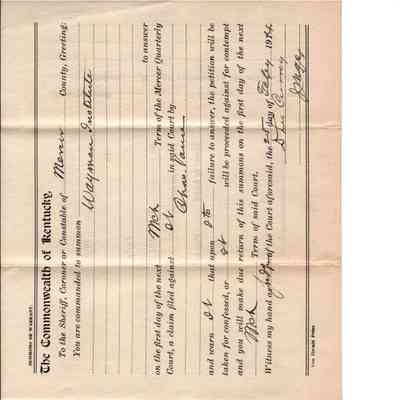 SUMMONS OR WARRANT.
The Commonwealth of Kentucky,
To the Sheriff, Coroner or Constable of Mercer County, Greeting:
You are commanded to summon
Wayman Institute
to answer
on the first day of the next Mch Term of the Mercer Quarterly
Court, a claim filed against it in said Court by
Chas.
and warn it that upon its failure to answer, the petition will be
taken for confessed, or it will be proceeded against for contempt
and you will make due return of this summons on the first day of the next
Mch Term of said Court.
Witness my hand as of the Court aforesaid, the 25 day of Feby 191